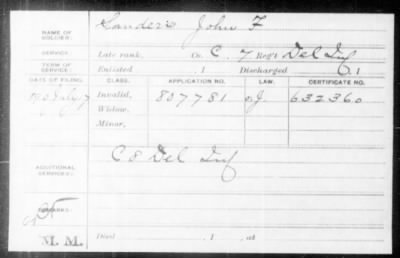 NAME OF SOLDIER: Sanders John F
SERVICE: Late rank, Co. C, 7 Reg't Del Inf
TERM OF SERVICE: Enlisted , 1 Discharged , 1
DATE OF FILING. CLASS. APPLICATION NO. LAW. CERTIFICATE NO.
July 7 Invalid, 807781 J. 632360
Widow,
Minor,
ADDITIONAL SERVICES: C 8 Del Inf
REMARKS:
M. M. Died , 1 , at